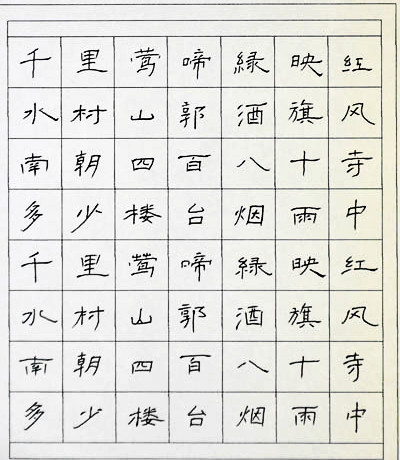 千里莺啼緑映红
水村山郭酒旗风
南朝四百八十寺
多少楼台烟雨中
千里莺啼緑映红
水村山郭酒旗风
南朝四百八十寺
多少楼台烟雨中